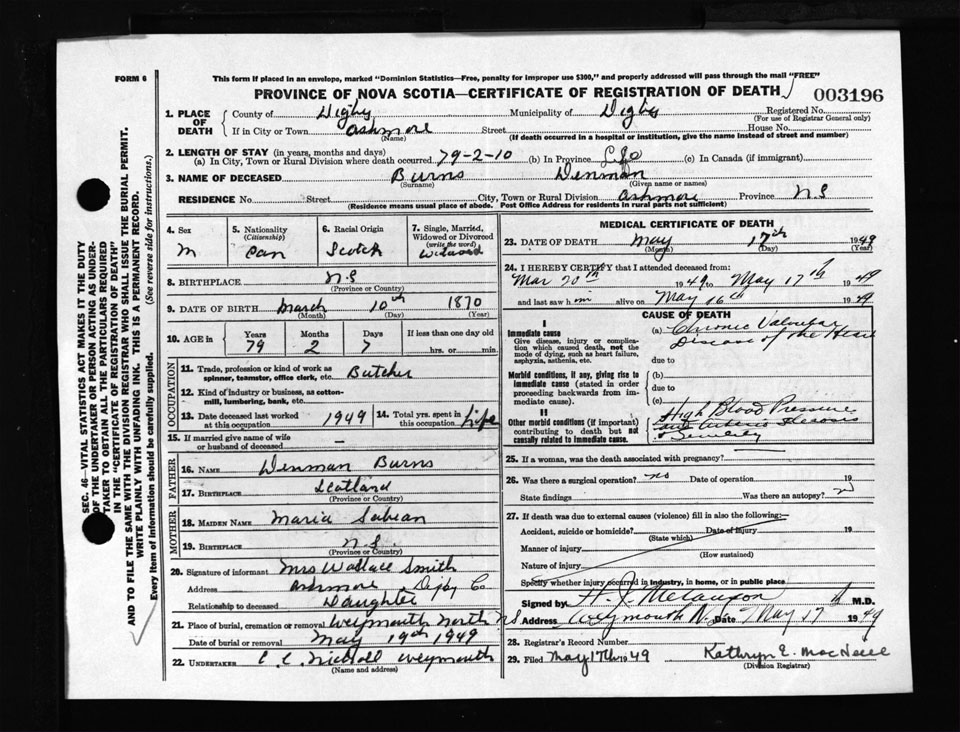 FORM 6
This form if placed in an envelope, marked "Dominion Statistics—Free, penalty for improper use $300," and properly addressed will pass through the mail "FREE"
PROVINCE OF NOVA SCOTIA—CERTIFICATE OF REGISTRATION OF DEATH
003196
1. PLACE OF DEATH County of Digby Municipality of Digby Registered No.
(For use of Registrar General only)
If in City or Town Ashmore Street House No.
(Name) (If death occurred in a hospital or institution, give the name instead of street and number)
2. LENGTH OF STAY (in years, months and days)
(a) In City, Town or Rural Division where death occurred 79-2-10 (b) In Province Life (c) In Canada (if immigrant)
3. NAME OF DECEASED Burns Denman
(Surname) (Given name or names)
RESIDENCE No. Street City, Town or Rural Division Ashmore Province N.S
(Residence means usual place of abode. Post Office Address for residents in rural parts not sufficient)
4. Sex 5. Nationality (Citizenship) 6. Racial Origin 7. Single, Married, Widowed or Divorced (write the word)
M Can Scotch Widowed
8. BIRTHPLACE N.S
(Province or Country)
9. DATE OF BIRTH March 10th 1870
(Month) (Day) (Year)
10. AGE in Years Months Days If less than one day old
79 2 7 hrs. or min.
OCCUPATION
11. Trade, profession or kind of work as spinner, teamster, office clerk, etc. Butcher
12. Kind of industry or business, as cotton-mill, lumbering, bank, etc.
13. Date deceased last worked at this occupation 1949 14. Total yrs. spent in this occupation Life
15. If married give name of wife or husband of deceased —
FATHER
16. NAME Denman Burns
17. BIRTHPLACE Scotland
(Province or Country)
MOTHER
18. MAIDEN NAME Maria Sabean
19. BIRTHPLACE N.S.
(Province or Country)
20. Signature of informant Mrs Wallace Smith
Address Ashmore Digby Co
Relationship to deceased Daughter
21. Place of burial, cremation or removal Weymouth North N.S.
Date of burial or removal May 19th 1949
22. UNDERTAKER C. C. Nicholl Weymouth
(Name and address)
MEDICAL CERTIFICATE OF DEATH
23. DATE OF DEATH May 17th 1949
(Month) (Day) (Year)
24. I HEREBY CERTIFY that I attended deceased from:
Mar 20th 1949 to May 17th 1949
and last saw him alive on May 16th 1949
CAUSE OF DEATH
I
Immediate cause
Give disease, injury or complication which caused death, not the mode of dying, such as heart failure, asphyxia, asthenia, etc.
(a) Chronic Valvular
Disease of the Heart
due to
Morbid conditions, if any, giving rise to immediate cause (stated in order proceeding backwards from immediate cause).
(b)
due to
(c)
II
Other morbid conditions (if important) contributing to death but not causally related to immediate cause.
High Blood Pressure
and Arterio Sclerosis
25. If a woman, was the death associated with pregnancy?
26. Was there a surgical operation? no Date of operation 19
State findings Was there an autopsy? no
27. If death was due to external causes (violence) fill in also the following:
Accident, suicide or homicide? Date of injury 19
(State which)
Manner of injury
(How sustained)
Nature of injury
Specify whether injury occurred in industry, in home, or in public place
Signed by H. J. Melanson M.D.
Address Weymouth N. Date May 17 1949
28. Registrar's Record Number
29. Filed May 17th 1949 Kathryn E.
(Division Registrar)
SEC. 46—VITAL STATISTICS ACT MAKES IT THE DUTY
OF THE UNDERTAKER OR PERSON ACTING AS UNDER-
TAKER TO OBTAIN ALL THE PARTICULARS REQUIRED
IN THE "CERTIFICATE OF REGISTRATION OF DEATH"
AND TO FILE THE SAME WITH THE DIVISION REGISTRAR WHO SHALL ISSUE THE BURIAL PERMIT.
WRITE PLAINLY WITH UNFADING INK. THIS IS A PERMANENT RECORD.
Every item of information should be carefully supplied. (See reverse side for instructions.)